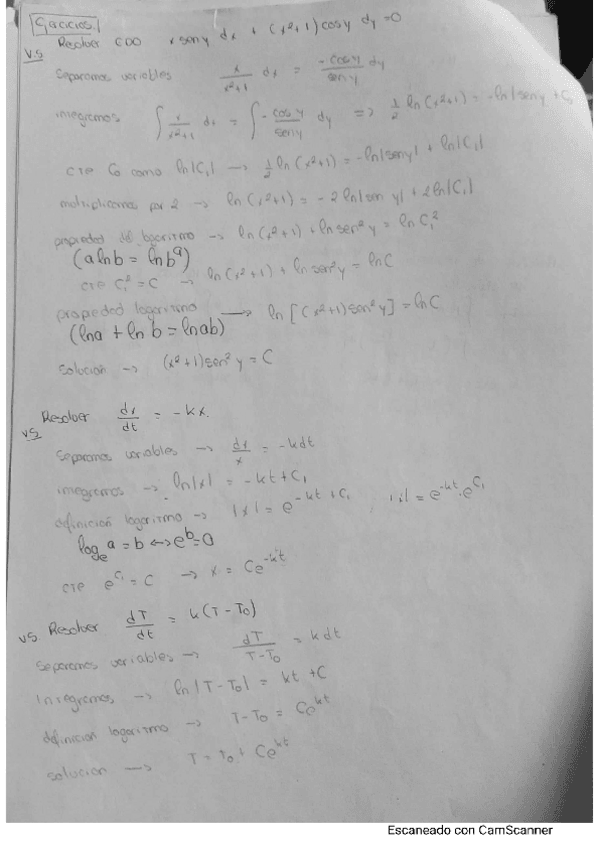 Ejercicios
V.S Resolver EDO x sen y dx + (x²+1) cos y dy = 0
Separamos variables x/(x²+1) dx = -cos y/sen y dy
integramos ∫ x/(x²+1) dx = ∫ -cos y/sen y dy => 1/2 ln(x²+1) = -ln|sen y| + C₀
cte C₀ como ln|C₁| → 1/2 ln(x²+1) = -ln|sen y| + ln|C₁|
multiplicamos por 2 → ln(x²+1) = -2 ln|sen y| + 2 ln|C₁|
propiedad del logaritmo → ln(x²+1) + ln sen² y = ln C₁²
(a ln b = ln bᵃ)
cte C₁² = C → ln(x²+1) + ln sen² y = ln C
propiedad logaritmo → ln [(x²+1) sen² y] = ln C
(ln a + ln b = ln ab)
Solucion → (x²+1) sen² y = C
V.S Resolver dx/dt = -kx
Separamos variables → dx/x = -k dt
integramos → ln|x| = -kt + C₁
definición logaritmo → |x| = e^(-kt + C₁) |x| = e^(-kt) · e^(C₁)
logₑ a = b ↔ e^b = a
cte e^(C₁) = C → x = Ce^(-kt)
V.S Resolver dT/dt = k(T - T₀)
Separamos variables → dT/(T - T₀) = k dt
Integramos → ln|T - T₀| = kt + C
definicion logaritmo → T - T₀ = Ce^(kt)
solucion → T = T₀ + Ce^(kt)
Escaneado con CamScanner